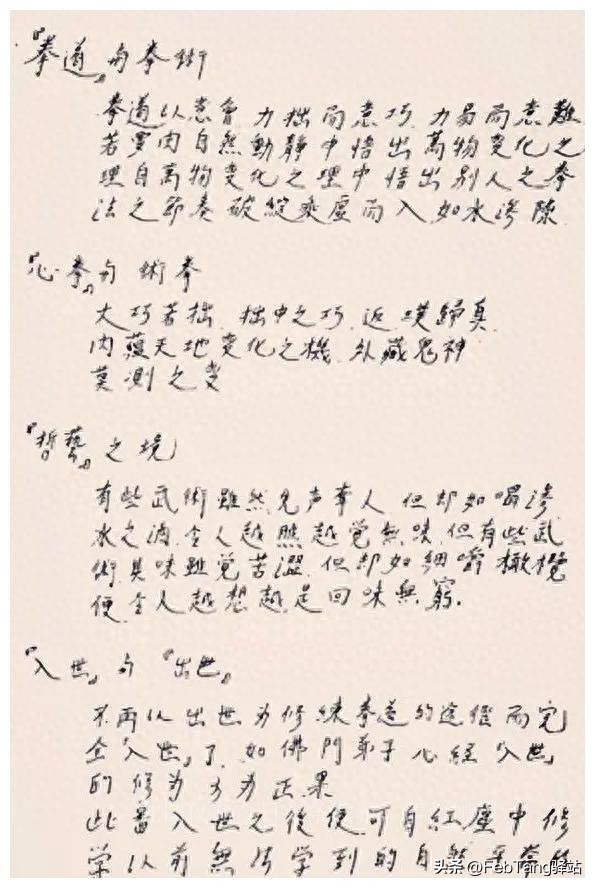 『拳道』与拳術
拳道以意會 力拙而意巧 力易而意難
若要内自然動静中悟出萬物变化之
理自萬物变化之理中悟出别人之拳
法之節奏破綻乘虛而入 如水滲隙
『心拳』与術拳
大巧若拙 拙中之巧 返璞歸真
内蕴天地变化之機 外藏鬼神
莫測之变
『哲藝』之境
有些武術雖然先声奪人 但却如喝滲
水之酒 令人越 越觉無味 但有些武
術其味雖觉苦澀 但却如細嚼橄欖
便令人越想越是回味無窮.
『入世』与『出世』
不再以出世为修练拳道的途徑而完
全『入世』了 如佛門弟子 心經『入世』
的修为 方为正果
此番入世之後便可自紅塵中修
学以前無法学到的自然
头条@FebTang驿站